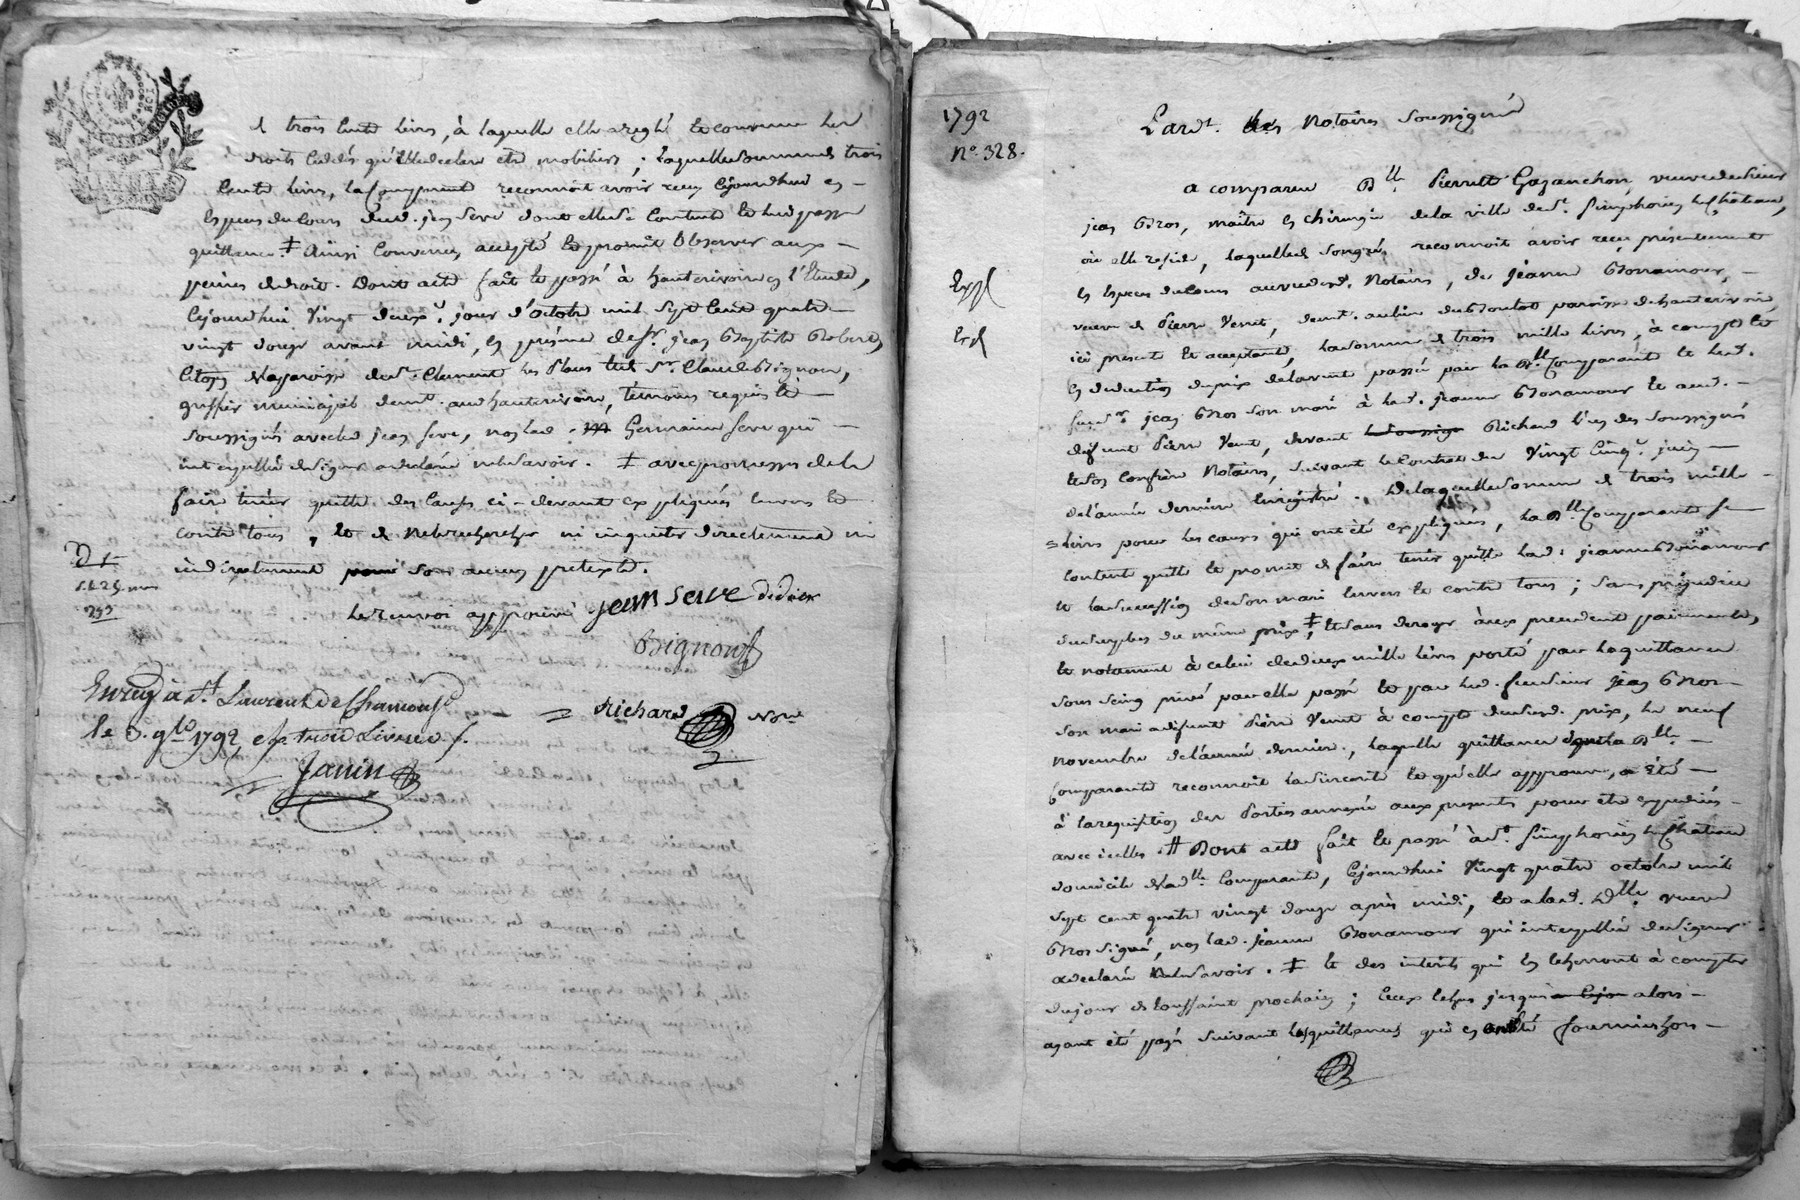 de trois cents livres, à laquelle elle a reglé le
droits cedés qu'elle declare etre mobiliers ; laquelle somme de trois
cents livres, la Comparante reconnoit avoir reçu cejourdhui en
especes de cours dud. jean Serve dont elle se contente le lui passe
quittance ‡ Ainsi Convenu, accepté et promit Observer aux
peines de droit. Dont acte fait et passé à hauterivoire en l'Etude,
Cejourdhui Vingt deux.e jour d'octobre mil sept cent quatre
vingt douze avant midi, en présence de s.r jean Baptiste
Citoyen de la paroisse de st. Clement les Places et de s.r Claude Bignon,
greffier municipal demt. aud hauterivoire, temoins requis et
soussignés avec led jean Serve, non lad. Germaine Serve qui
interpellée de signer a declaré ne le savoir. ‡ avec promesses de le
faire tenir quitte des Causes ci-devant expliqués envers et
contre tous, et de ne le rechercher ni inquieter directement ni
indirectement sous aucun pretexte.
le renvoi approuvé jean serve
Bignon
Richard Nore
Enreg à st. Laurent de Chamousset
le 3. 9bre 1792, trois Livres
Janin
1792
N°. 328.
Expl
Pardt. les Notaires Soussignés
a comparu Dlle Pierrette Gazanchon, veuve de sieur
jean Gros, maître en chirurgie de la ville de st. Simphorien le Château,
où elle reside, laquelle de son gré, reconnoit avoir reçu présentement
en especes de cours au vu desd. Notaires, de jeanne Bonamour,
veuve de Pierre Venet, demt. au lieu du paroisse de hauterivoire
ici presente et acceptante, la somme de trois mille livres, à compte et
en deduction du prix de la vente passée par la Dlle Comparante et led.
feu sr. jean Gros son mari à lad. jeanne Bonamour et aud.
defunt Pierre Venet, devant Richard l'un des soussignés
et son confrère Notaires, suivant le Contrat du Vingt Cinq.e juin
de l'année derniere Enregistré. De laquelle somme de trois mille
livres pour les causes qui ont été expliqués, la Dlle Comparante se
contente quitte et promet de faire tenir quitte lad. jeanne Bonamour
et la succession de son mari envers et contre tous ; sans préjudice
du surplus du même prix, ‡ et sans deroger aux precedents paiements,
et notament à celui de deux mille livres porté par la quittance
sous seing privé par elle passée et par led. feu sieur jean Gros
son mari aud defunt Pierre Venet à compte dudud. prix, le neuf
novembre de l'année derniere, laquelle quittance dont la Dlle
Comparante reconnoit la sincerité et qu'elle approuve, a été
à la requisition des Parties annexée aux presentes pour etre expediée
avec icelles # Dont acte fait et passé à st. Simphorien le Château
domicile de lad.lle Comparante, Cejourdhui Vingt quatre octobre mil
sept cent quatre vingt douze après midi, et a lad. Dlle veuve
Gros signé, non lad. jeanne Bonamour qui interpellée de signer
a declaré ne le savoir. ‡ et des interets qui en écherront à compter
du jour de toussaint prochain ; Ceux echus jusqu'alors
ayant été payés suivant les quittances qui en ont été fournies hors